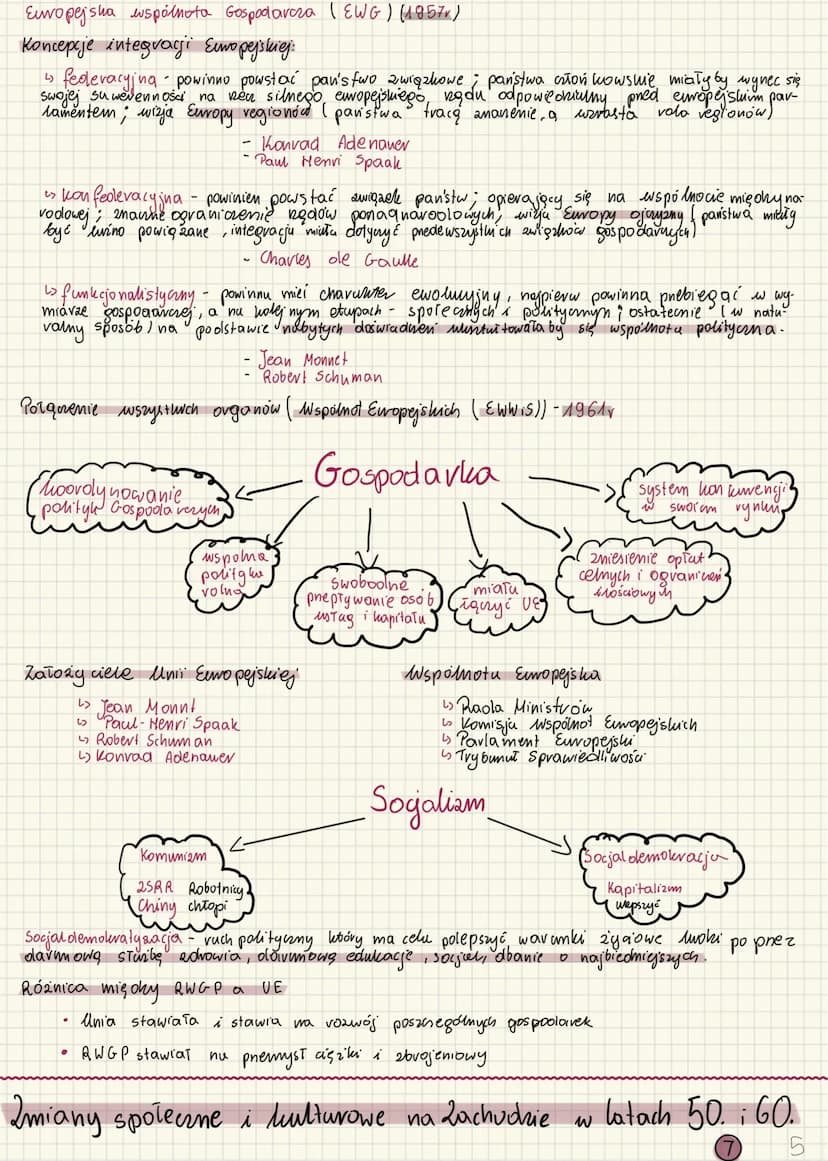 Europejska wspólnota Gospodarcza (EWG) (1957r)
Koncepcje integracji Europejskiej:
↳ federacyjna - powinno powstać państwo związkowe ; państwa członkowskie miałyby wyrzec się
swojej suwerenności na rzecz silnego europejskiego rządu odpowiedzialny przed europejskim par-
lamentem ; wizja Europy regionów (państwa tracą znaczenie, a wzrasta rola regionów)
- Konrad Adenauer
- Paul Henri Spaak
↳ konfederacyjna - powinien powstać związek państw ; opierający się na wspólnocie międzyna-
rodowej ; znaczne ograniczenie rządów ponadnarodowych, wizja Europy ojczyzny (państwa miały
być luźno powiązane, integracja miała dotyczyć przedewszystkich związków gospodarczych)
- Charles de Gaulle
↳ funkcjonalistyczny - powinnu mieć charakter ewolucyjny, najpierw powinna przebiegać w wy-
miarze gospodarczej, a na kolejnym etapach - społecznych i politycznym ; ostatecznie (w natu-
ralny sposób) na podstawie nabytych doświadczeń ukształtowała by się wspólnota polityczna.
- Jean Monnet
- Robert Schuman
Połączenie wszystkich organów (Wspólnot Europejskich (EWWiS)) - 1961r
Gospodarka
koordynowanie
polityk Gospodarczych
system konkurencji
w swoim rynku
wspólna
polityka
rolna
swobodne
przepływanie osób
usług i kapitału
miała
łączyć UE
zniesienie opłat
celnych i ograniczeń
ilościowych
Założyciele Unii Europejskiej
↳ Jean Monnt
↳ Paul-Henri Spaak
↳ Robert Schuman
↳ Konrad Adenauer
Wspólnota Europejska
↳ Rada Ministrów
↳ Komisja Wspólnot Europejskich
↳ Parlament Europejski
↳ Trybunał Sprawiedliwości
Socjalizm
Komunizm
ZSRR Robotnicy
Chiny chłopi
Socjaldemokracja
Kapitalizm
ulepszyć
Socjaldemokratyzacja - ruch polityczny który ma celu polepszyć warunki życiowe ludzi po przez
darmową służbę zdrowia, darmową edukację, socjal, dbanie o najbiedniejszych.
Różnica między RWGP a UE
• Unia stawiała i stawia na rozwój poszczególnych gospodarek
• RWGP stawiał na przemysł ciężki i zbrojeniowy
Zmiany społeczne i kulturowe na Zachodzie w latach 50. i 60.
7 5